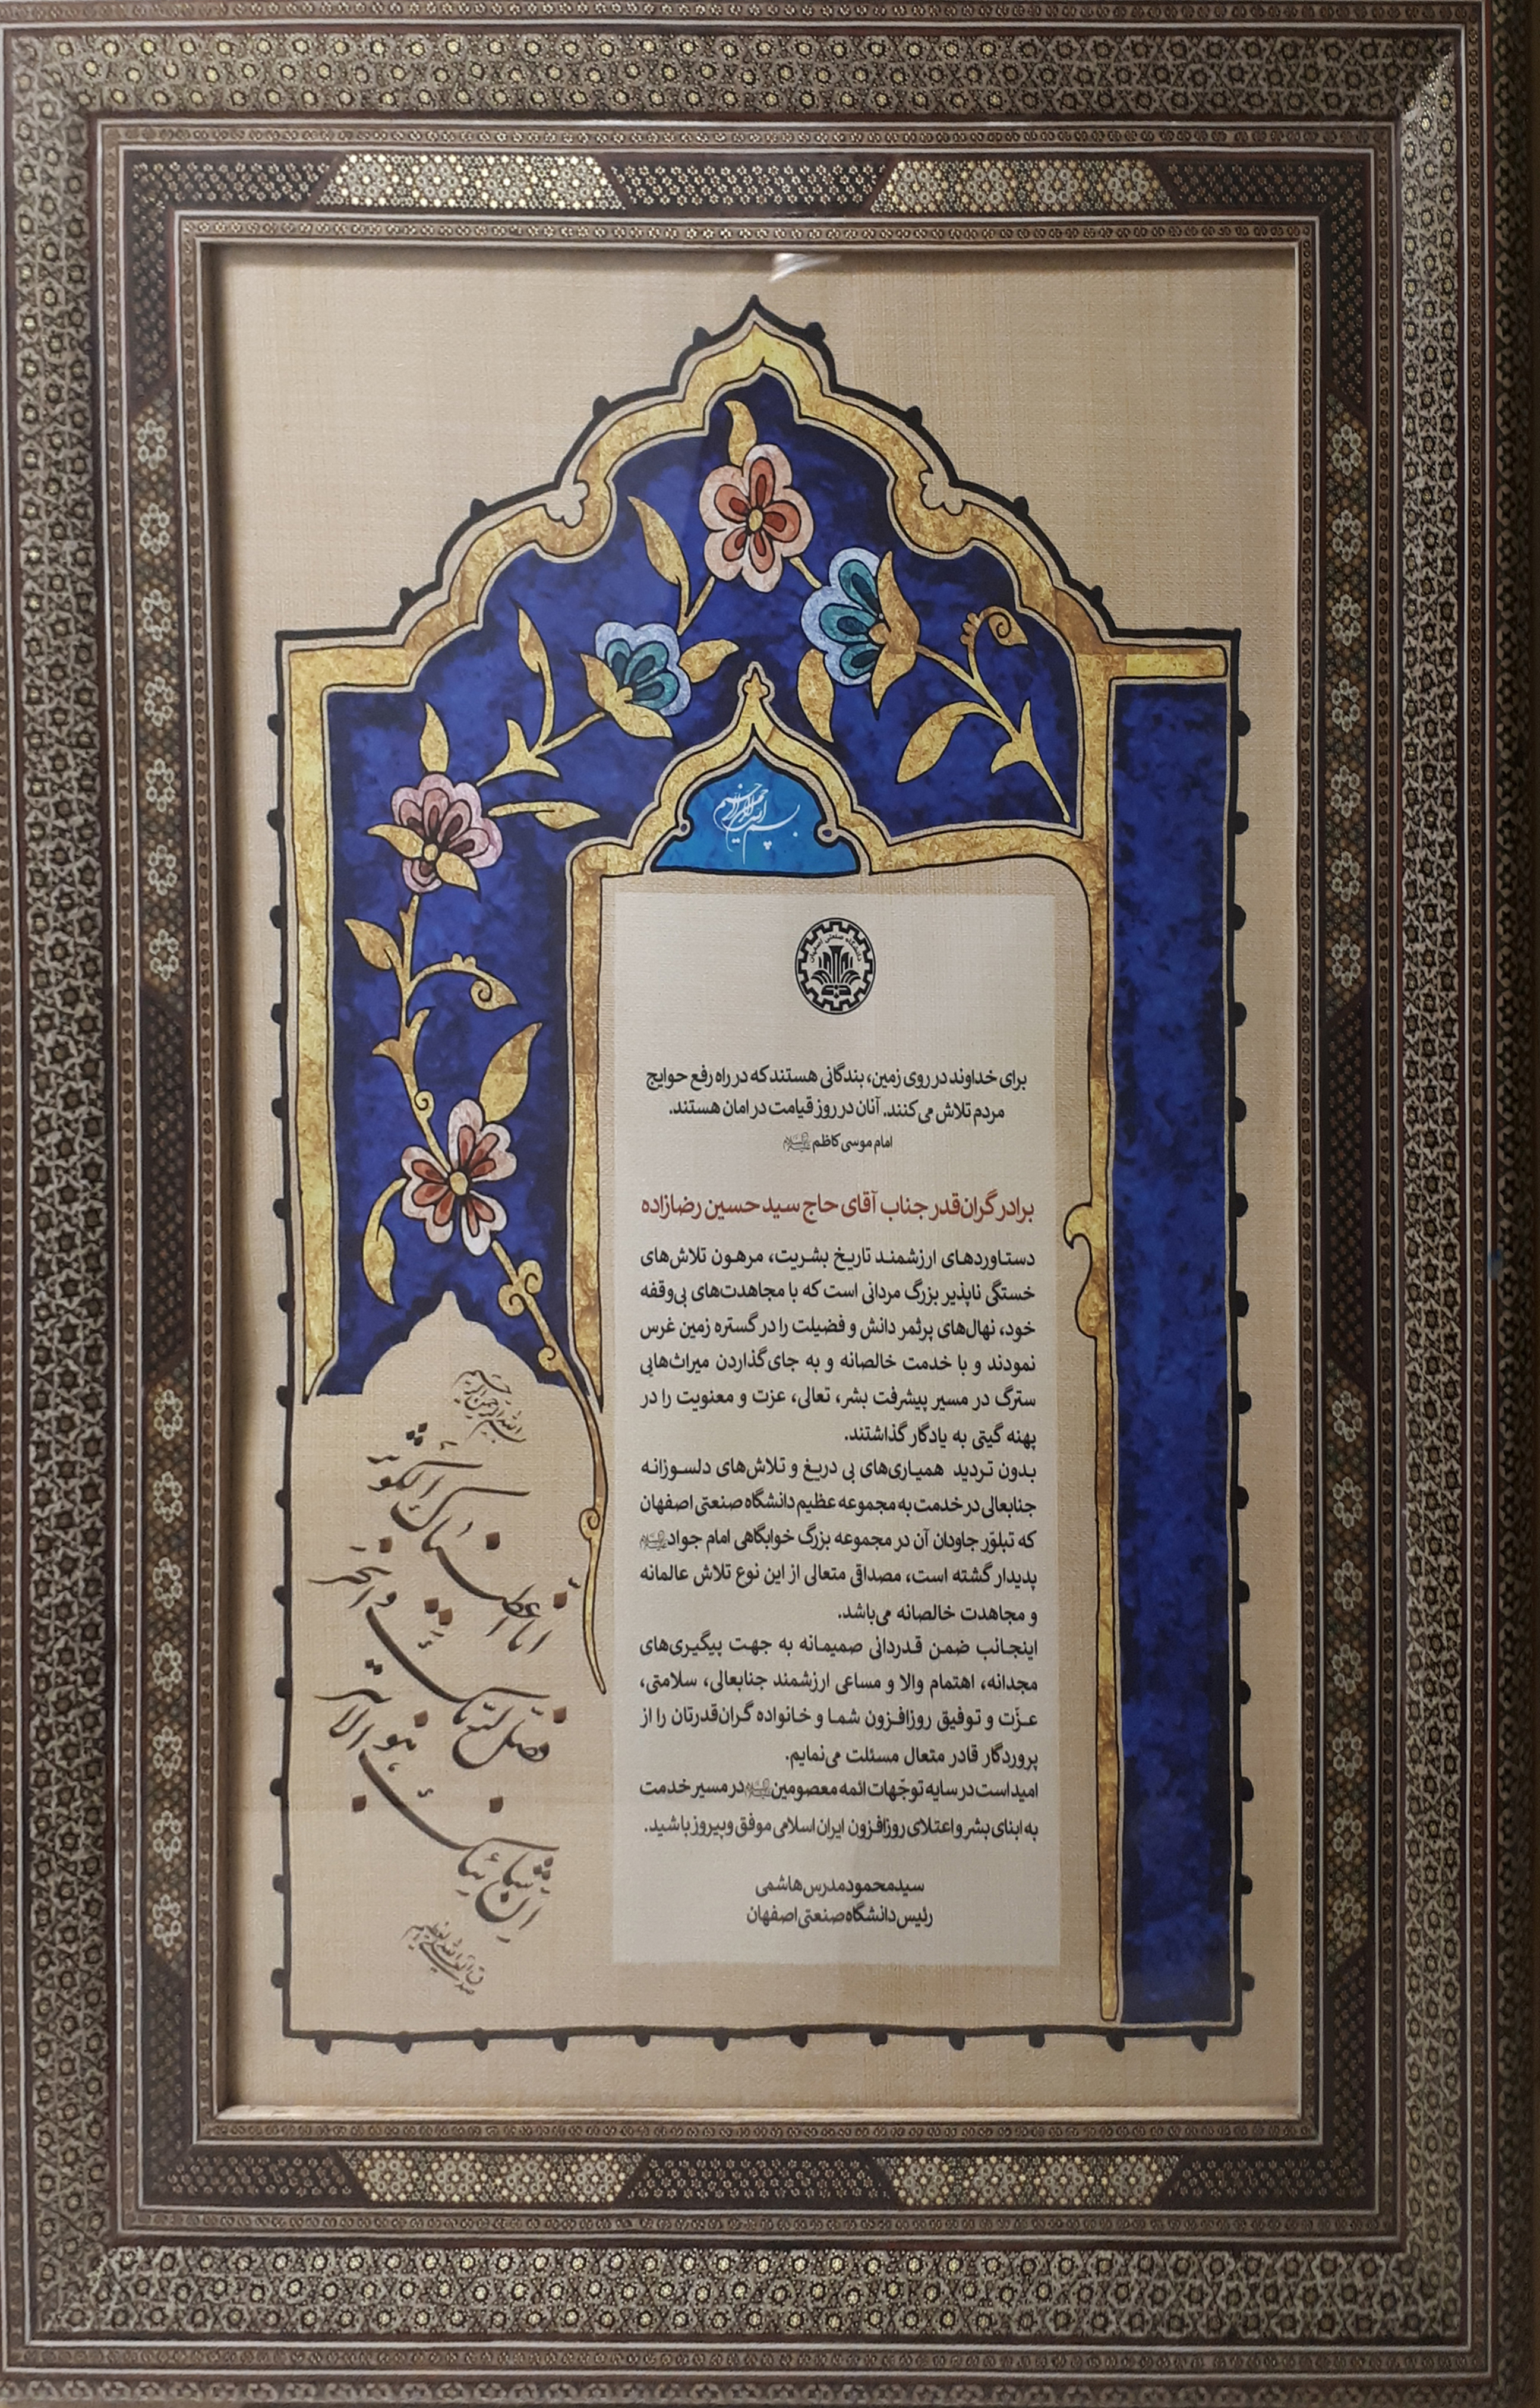 بسم الله الرحمن الرحیم
دانشگاه صنعتی اصفهان
برای خداوند در روی زمین، بندگانی هستند که در راه رفع حوایج
مردم تلاش می‌کنند. آنان در روز قیامت در امان هستند.
امام موسی کاظم علیه‌السلام
برادر گران‌قدر جناب آقای حاج سید حسین رضازاده
دستاوردهای ارزشمند تاریخ بشریت، مرهون تلاش‌های
خستگی ناپذیر بزرگ مردانی است که با مجاهدت‌های بی‌وقفه
خود، نهال‌های پرثمر دانش و فضیلت را در گستره زمین غرس
نمودند و با خدمت خالصانه و به جای گذاردن میراث‌هایی
سترگ در مسیر پیشرفت بشر، تعالی، عزت و معنویت را در
پهنه گیتی به یادگار گذاشتند.
بدون تردید همیاری‌های بی دریغ و تلاش‌های دلسوزانه
جنابعالی در خدمت به مجموعه عظیم دانشگاه صنعتی اصفهان
که تبلوّر جاودان آن در مجموعه بزرگ خوابگاهی امام جواد علیه‌السلام
پدیدار گشته است، مصداقی متعالی از این نوع تلاش عالمانه
و مجاهدت خالصانه می‌باشد.
اینجانب ضمن قدردانی صمیمانه به جهت پیگیری‌های
مجدانه، اهتمام والا و مساعی ارزشمند جنابعالی، سلامتی،
عزّت و توفیق روزافزون شما و خانواده گران‌قدرتان را از
پروردگار قادر متعال مسئلت می‌نمایم.
امید است در سایه توجّهات ائمه معصومین علیهم‌السلام در مسیر خدمت
به ابنای بشر و اعتلای روزافزون ایران اسلامی موفق و پیروز باشید.
سید محمود مدرس هاشمی
رئیس دانشگاه صنعتی اصفهان
بسم الله الرحمن الرحیم
انا اعطیناک الکوثر
فصل لربک وانحر
ان شانئک هو الابتر
صدق الله العلی العظیم